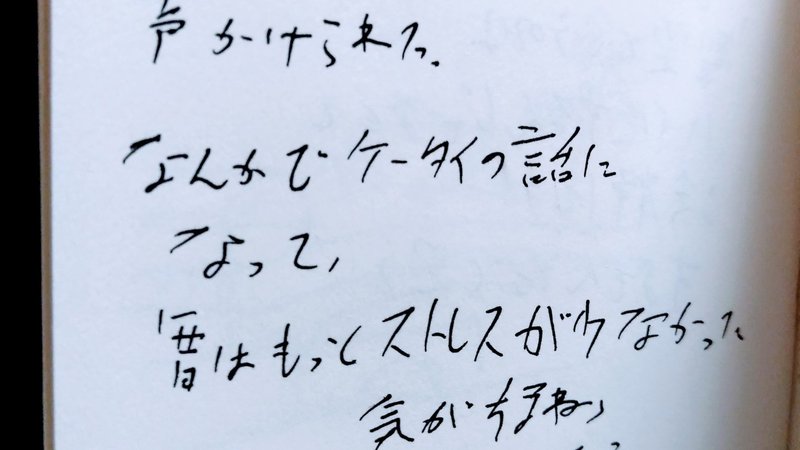 声かけられた。
なんかでケータイの話に
なって、
昔はもっとストレスが少なかった
気がするね